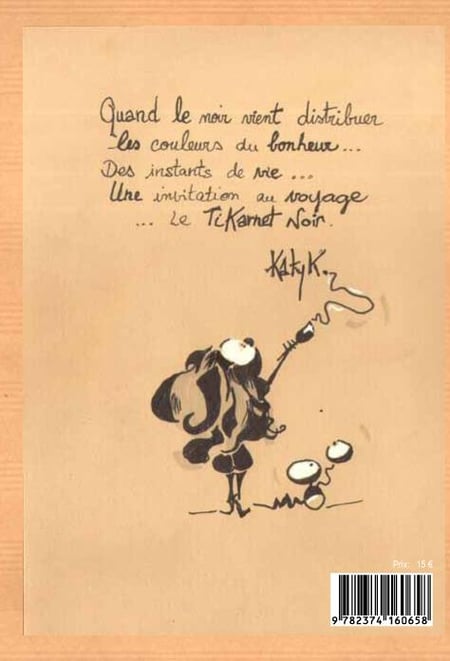 Quand le noir vient distribuer
les couleurs du bonheur...
Des instants de vie ...
Une invitation au voyage
... Le TiKarnet Noir.
KatyK.
Prix: 15 €
9 782374 160658